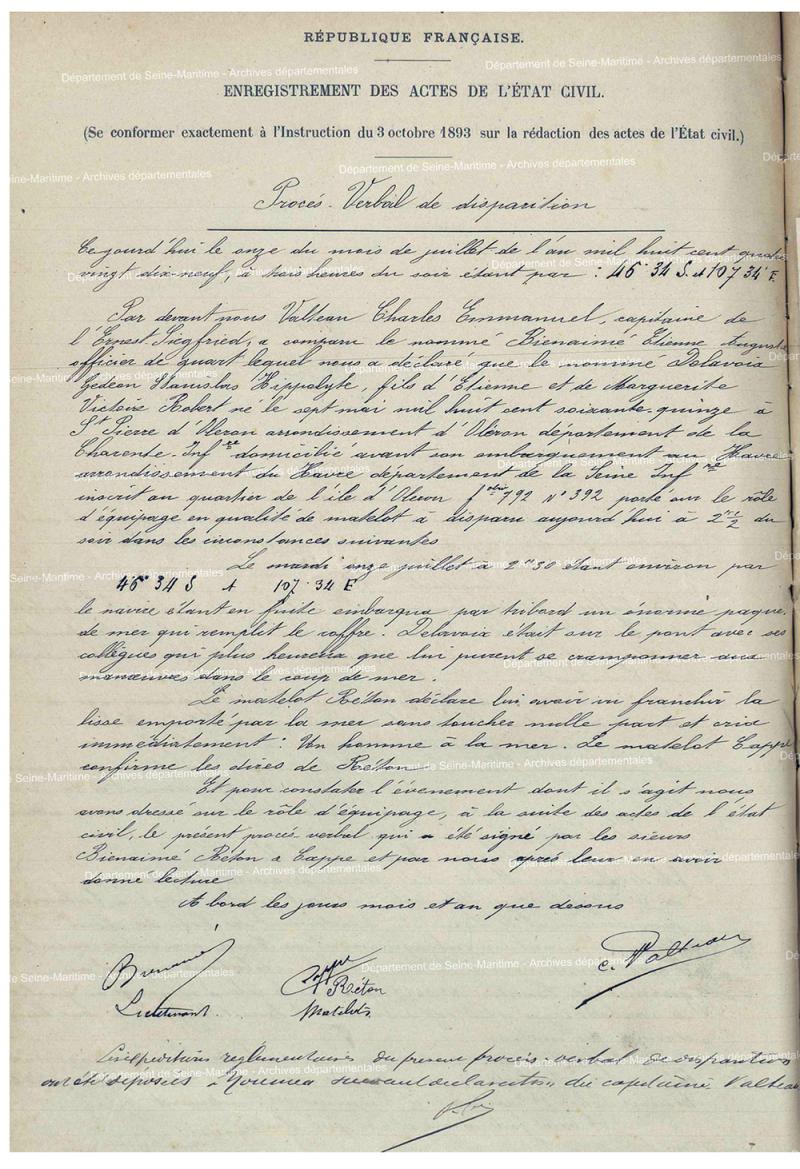 RÉPUBLIQUE FRANÇAISE.
ENREGISTREMENT DES ACTES DE L'ÉTAT CIVIL.
(Se conformer exactement à l'Instruction du 3 octobre 1893 sur la rédaction des actes de l'État civil.)
Procés-Verbal de disparition
Ce jourd'hui le onze du mois de juillet de l'an mil huit cent quatre
vingt dix neuf, à trois heures du soir étant par : 46° 34 S. et 107 34 E.
Par devant nous Valteau Charles Emmanuel, capitaine de
l'Ernest Siegfried, a comparu le nommé Bienaimé Etienne Auguste
officier de quart lequel nous a déclaré que le nommé Delavoix
Gédéon Stanislas Hippolyte, fils d'Etienne et de Marguerite
Victoire Robert né le sept mai mil huit cent soixante-quinze à
St Pierre d'Oléron arrondissement d'Oléron département de la
Charente-Infre domicilié avant son embarquement au Havre
arrondissement du Havre département de la Seine Infre
inscrit au quartier de l'ile d'Oléron f° 792 N° 392 porté sur le rôle
d'équipage en qualité de matelot à disparu aujourd'hui à 2 ½ du
soir dans les circonstances suivantes
Le mardi onze juillet à 2 30 étant environ par
46° 34 S et 107. 34 E
le navire étant en fuite embarqua par tribord un énorme paquet
de mer qui remplit le coffre. Delavoix était sur le pont avec ses
collègues qui plus heureux que lui purent se cramponner aux
manœuvres dans le coup de mer.
Le matelot Réton déclare lui avoir vu franchir la
lisse emporté par la mer sans toucher nulle part et cria
immédiatement : Un homme à la mer. Le matelot Cappe
confirme les dires de Réton.
Et pour constater l'évenement dont il s'agit nous
avons dressé sur le rôle d'équipage, à la suite des actes de l'état
civil, le présent procès-verbal qui a été signé par les sieurs
Bienaimé Réton & Cappe et par nous après leur en avoir
donné lecture
A bord les jours mois et an que dessus
Bienaimé
Lieutenant.
Réton
Matelots
C. Valteau
Expéditions réglementaires du présent procès-verbal de disparition
ont été déposées à Nouméa suivant déclaration du capitaine Valteau
Département de Seine-Maritime - Archives départementales